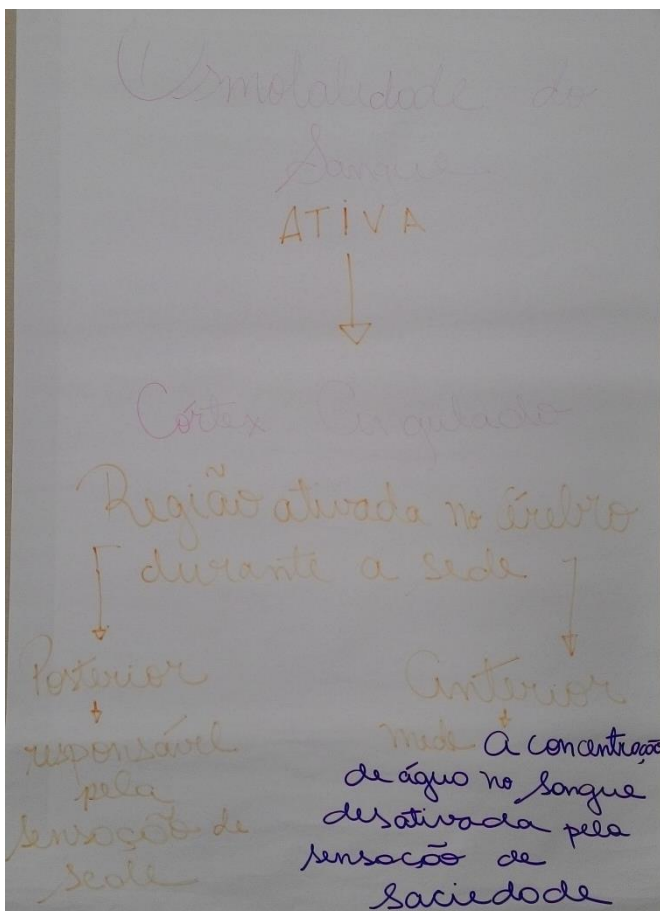 Osmolalidade do
Sangue
ATIVA
Córtex Cingulado
Região ativada no cérebro
durante a sede
Posterior
responsável
pela
sensação de
sede
Anterior
mede A concentração
de água no sangue
desativada pela
sensação de
saciedade